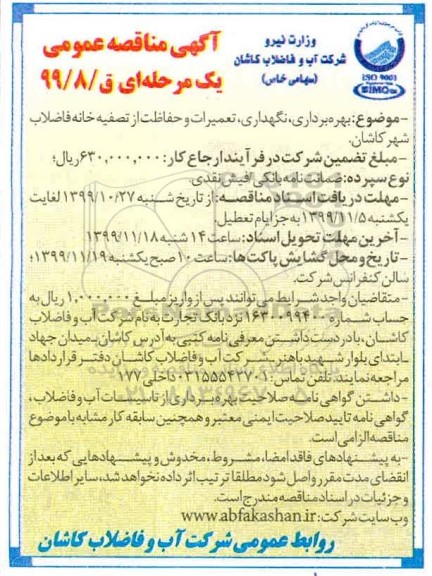 وزارت نیرو
شرکت آب و فاضلاب کاشان
(سهامی خاص)
ISO 9001
آگهی مناقصه عمومی
یک مرحله‌ای ق/۹۹/۸
-موضوع: بهره‌برداری، نگهداری، تعمیرات و حفاظت از تصفیه خانه فاضلاب
شهر کاشان.
-مبلغ تضمین شرکت در فرآیند ارجاع کار: ۶۳۰,۰۰۰,۰۰۰ ریال؛
نوع سپرده: ضمانت‌نامه بانکی، فیش نقدی.
-مهلت دریافت اسناد مناقصه: از تاریخ شنبه ۱۳۹۹/۱۰/۲۷ لغایت
یکشنبه ۱۳۹۹/۱۱/۵ به جز ایام تعطیل.
-آخرین مهلت تحویل اسناد: ساعت ۱۴ شنبه ۱۳۹۹/۱۱/۱۸
-تاریخ و محل گشایش پاکت‌ها: ساعت ۱۰ صبح یکشنبه ۱۳۹۹/۱۱/۱۹؛
سالن کنفرانس شرکت.
-متقاضیان واجد شرایط می‌توانند پس از واریز مبلغ ۱,۰۰۰,۰۰۰ ریال به
حساب شماره نزد بانک تجارت به نام شرکت آب و فاضلاب
کاشان، با در دست داشتن معرفی نامه کتبی به آدرس کاشان، میدان جهاد
ـ ابتدای بلوار شهید باهنر ـ شرکت آب و فاضلاب کاشان دفتر قراردادها
مراجعه نمایند. تلفن تماس: داخلی ۱۷۷
-داشتن گواهی نامه صلاحیت بهره‌برداری از تاسیسات آب و فاضلاب،
گواهی نامه تایید صلاحیت ایمنی معتبر و همچنین سابقه کار مشابه با موضوع
مناقصه الزامی است.
-به پیشنهادهای فاقد امضا، مشروط، مخدوش و پیشنهادهایی که بعد از
انقضای مدت مقرر واصل شود مطلقا ترتیب اثر داده نخواهد شد، سایر اطلاعات
و جزئیات در اسناد مناقصه مندرج است.
وب سایت شرکت: www.abfakashan.ir
روابط عمومی شرکت آب و فاضلاب کاشان